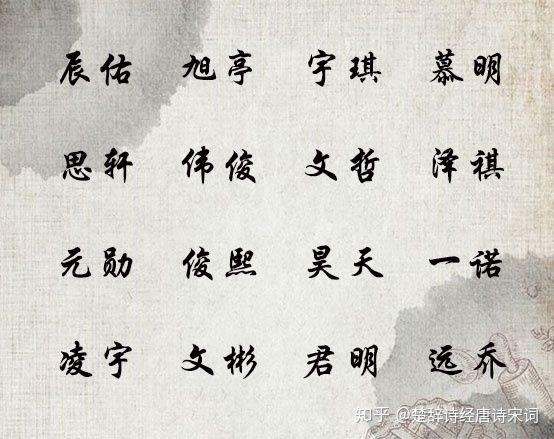 辰佑 旭亭 宇琪 慕明
思轩 伟俊 文哲 泽祺
元勋 俊熙 昊天 一诺
凌宇 文彬 君明 远乔
知乎 @楚辞诗经唐诗宋词